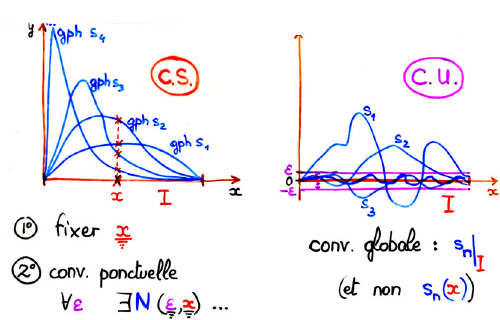 y
gph s₄
gph s₃
gph s₂
gph s₁
C.S.
x
I
x
1° fixer x
2° conv. ponctuelle
∀ε ∃N (ε,x) ...
C.U.
s₁
s₂
ε
0
-ε
s₃
I
x
conv. globale : sₙ|I
(et non sₙ(x))